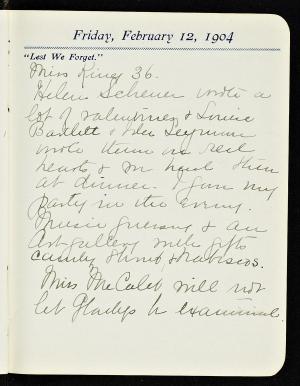 Friday, February 12, 1904
"Lest We Forget."
Miss King 36.
Helen Scheuer wrote a
lot of valentines & Louise
Bartlett & Helen Seymour
wrote them on red
hearts & we had them
at dinner. I gave my
party in the evening.
Music guessing & an
Art gallery with gifts
candy & nabiscos.
Miss McCaleb will not
let Gladys be examined.